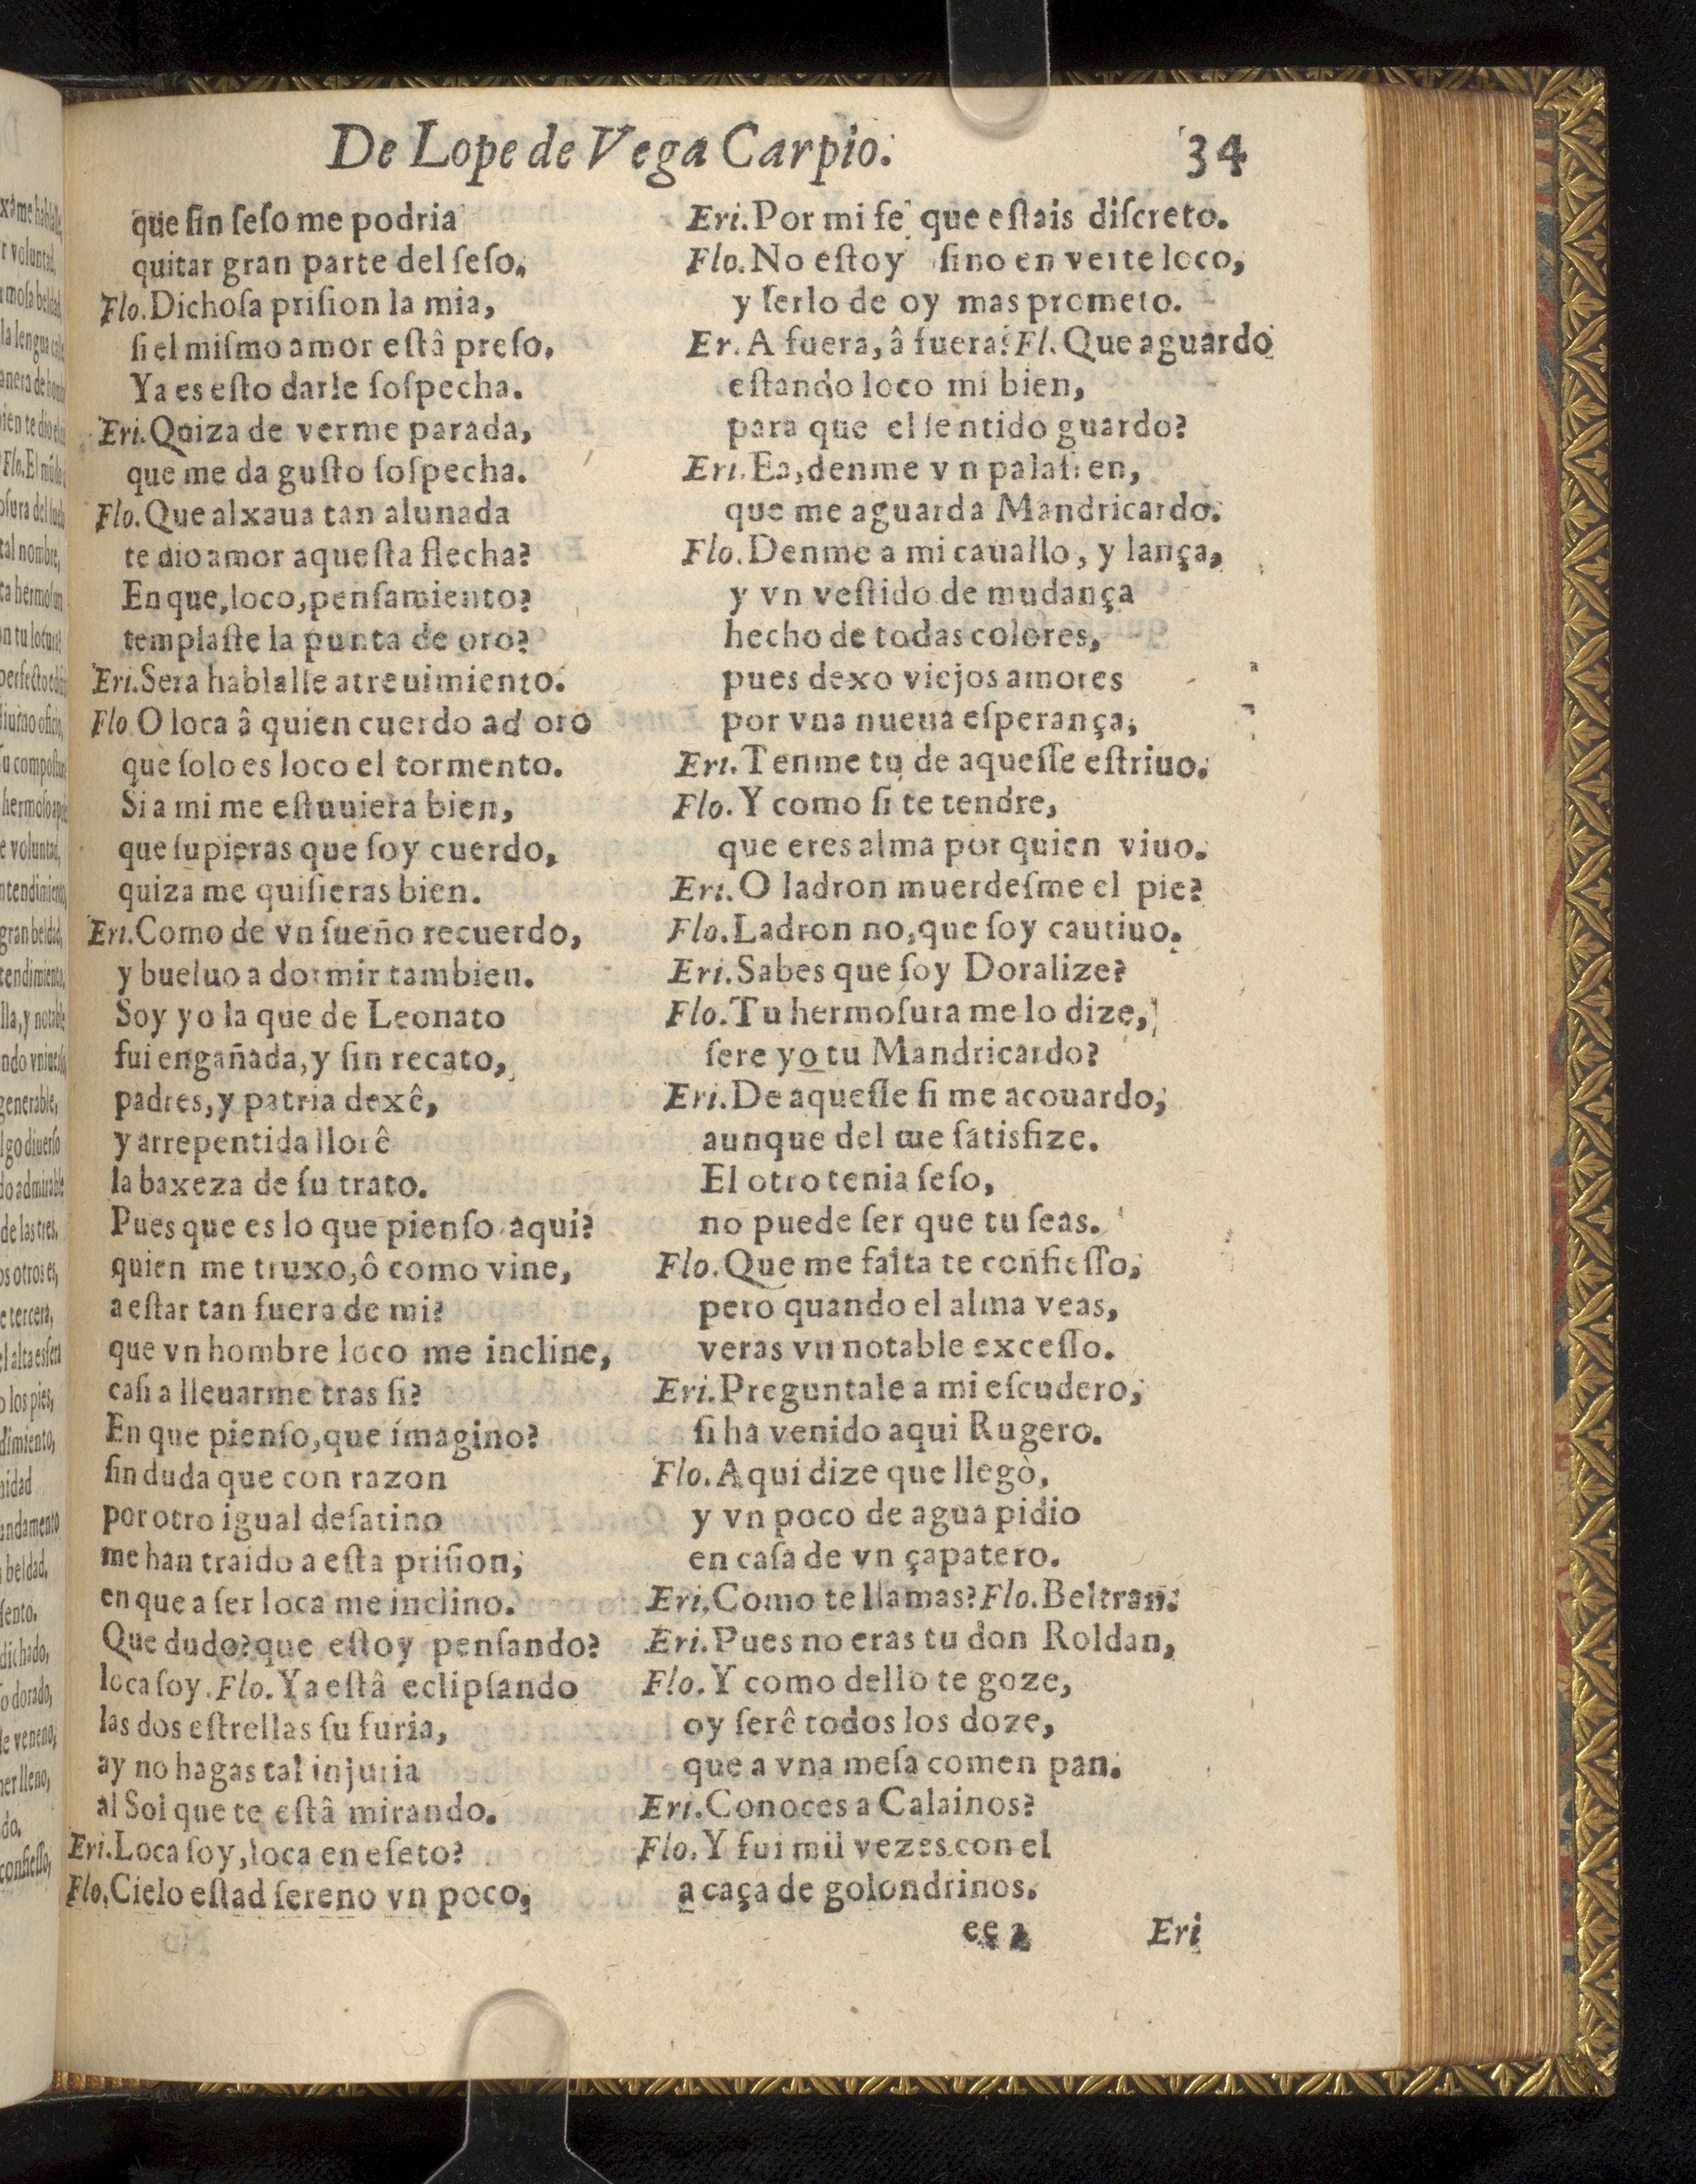 De Lope de Vega Carpio.
34
que sin seso me podria
quitar gran parte del seso,
Flo. Dichosa prision la mia,
si el mismo amor estâ preso,
Ya es esto darle sospecha.
Eri. Quiza de verme parada,
que me da gusto sospecha.
Flo. Que alxaua tan alunada
te dio amor aquesta flecha?
En que, loco, pensamiento?
templaste la punta de oro?
Eri. Sera hablalle atreuimiento.
Flo O loca â quien cuerdo ad oro
que solo es loco el tormento.
Si a mi me estuuiera bien,
que supieras que soy cuerdo,
quiza me quisieras bien.
Eri. Como de vn sueño recuerdo,
y bueluo a dormir tambien.
Soy yo la que de Leonato
fui engañada, y sin recato,
padres, y patria dexê,
y arrepentida llorê
la baxeza de su trato.
Pues que es lo que pienso aqui?
quien me truxo, ô como vine,
a estar tan fuera de mi?
que vn hombre loco me incline,
casi a lleuarme tras si?
En que pienso, que imagino?
sin duda que con razon
por otro igual desatino
me han traido a esta prision,
en que a ser loca me inclino.
Que dudo? que estoy pensando?
loca soy. Flo. Ya estâ eclipsando
las dos estrellas su furia,
ay no hagas tal injuria
al Sol que te estâ mirando.
Eri. Loca soy, loca en efeto?
Flo. Cielo estad sereno vn poco,
Eri. Por mi fe que estais discreto.
Flo. No estoy sino en verte loco,
y serlo de oy mas prometo.
Er. A fuera, â fuera? Fl. Que aguardo
estando loco mi bien,
para que el sentido guardo?
Eri. Ea, denme vn palafren,
que me aguarda Mandricardo.
Flo. Denme a mi cauallo, y lança,
y vn vestido de mudança
hecho de todas colores,
pues dexo viejos amores
por vna nueua esperança,
Eri. Tenme tu de aquesse estriuo.
Flo. Y como si te tendre,
que eres alma por quien viuo.
Eri. O ladron muerdesme el pie?
Flo. Ladron no, que soy cautiuo.
Eri. Sabes que soy Doralize?
Flo. Tu hermosura me lo dize,
sere yo tu Mandricardo?
Eri. De aquesse si me acouardo,
aunque del me satisfize.
El otro tenia seso,
no puede ser que tu seas.
Flo. Que me falta te confiesso,
pero quando el alma veas,
veras vn notable excesso.
Eri. Preguntale a mi escudero,
si ha venido aqui Rugero.
Flo. Aqui dize que llegò,
y vn poco de agua pidio
en casa de vn çapatero.
Eri. Como te llamas? Flo. Beltran.
Eri. Pues no eras tu don Roldan,
Flo. Y como dello te goze,
oy serê todos los doze,
que a vna mesa comen pan.
Eri. Conoces a Calainos?
Flo. Y fui mil vezes con el
a caça de golondrinos.
ee 2
Eri